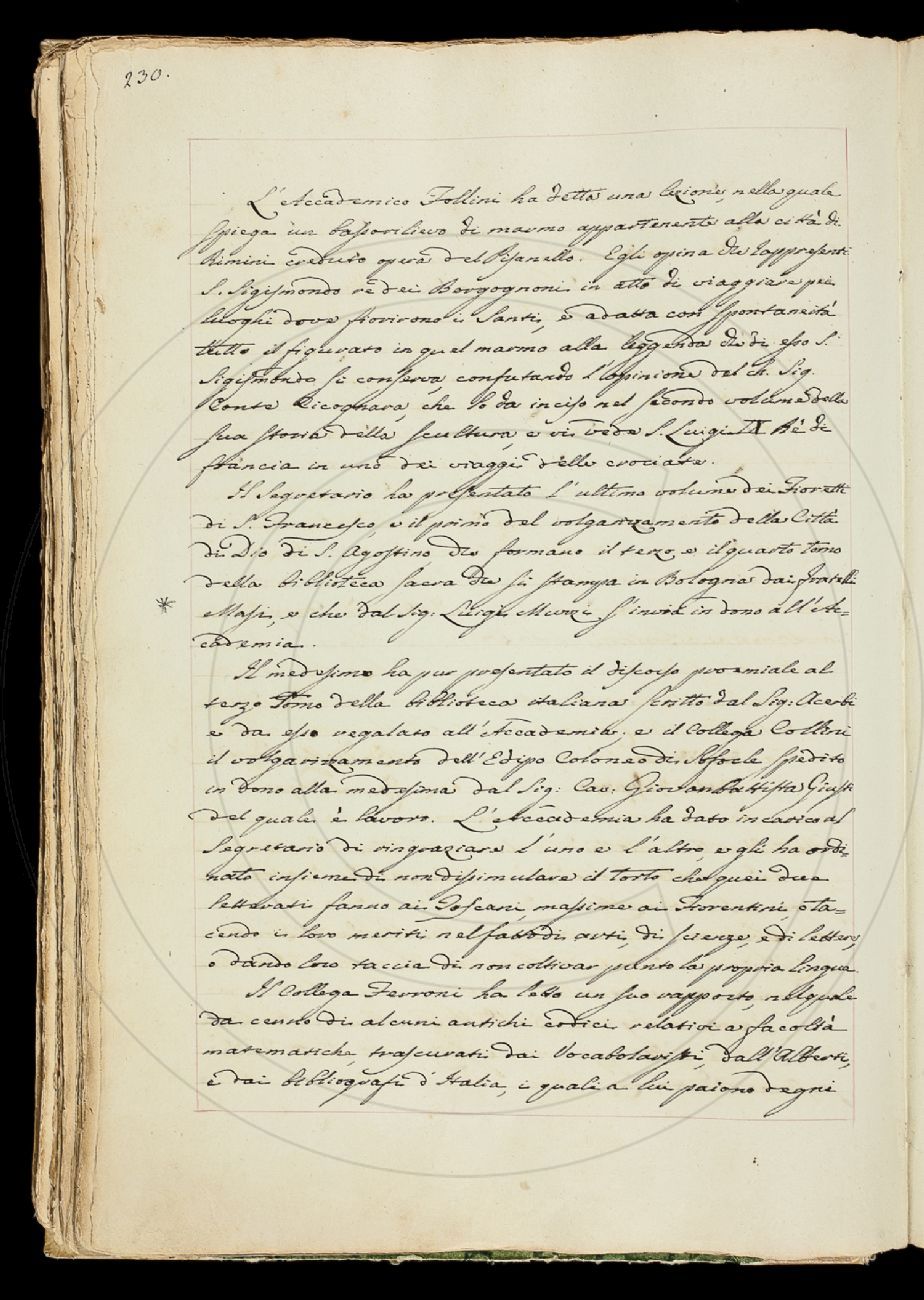 230.
L'Accademico Follini ha detta una lezione, nella quale
spiega un bassorilievo di marmo appartenente alla città di
Rimini creduto opera del Pisanello. Egli opina che rappresenti
S. Sigismondo rè dei Borgognoni in atto di viaggiare pei
luoghi dove fiorirono i Santi, e adatta con spontaneità
tutto il figurato in quel marmo alla leggenda che di esso S.
Sigismondo si conserva, confutando l'opinione del ch. Sig.
Conte Cicognara, che lo dà inciso nel secondo volume della
sua storia della scultura, e vi vede S. Luigi IX Rè di
francia in uno dei viaggi delle crociate.
Il Segretario ha presentato l'ultimo volume dei Fioretti
di S. Francesco, e il primo del volgarizzamento della Città
di Dio di S. Agostino che formano il terzo, e il quarto tomo
della biblioteca sacra che si stampa in Bologna dai fratelli
* Masi, e che dal Sig: Luigi Muzzi s'invia in dono all'Ac=
cademia.
Il medesimo ha pur presentato il discorso proemiale al
terzo Tomo della biblioteca italiana scritto dal Sig: Acerbi
e da esso regalato all'Accademia; e il Collega Collini
il volgarizzamento dell'Edipo Coloneo di Sofocle spedito
in dono alla medesima dal Sig: Cav: Giovanbattista Giusti
del quale è lavoro. L'Accademia ha dato incarico al
Segretario di ringraziare l'uno e l'altro, e gli ha ordi=
nato insieme di non dissimulare il torto che quei due
letterati fanno ai Toscani, massime ai Fiorentini, o ta=
cendo i loro meriti nel fatto di arti, di scienze, e di lettere,
o dando loro taccia di non coltivar punto la propria lingua
Il Collega Ferroni ha letto un suo rapporto, nel quale
dà cenno di alcuni antichi codici relativi a facoltà
matematiche, trascurati dai Vocabolaristi, dall'Alberti,
e dai bibliografi d'Italia, i quali a lui paiono degni